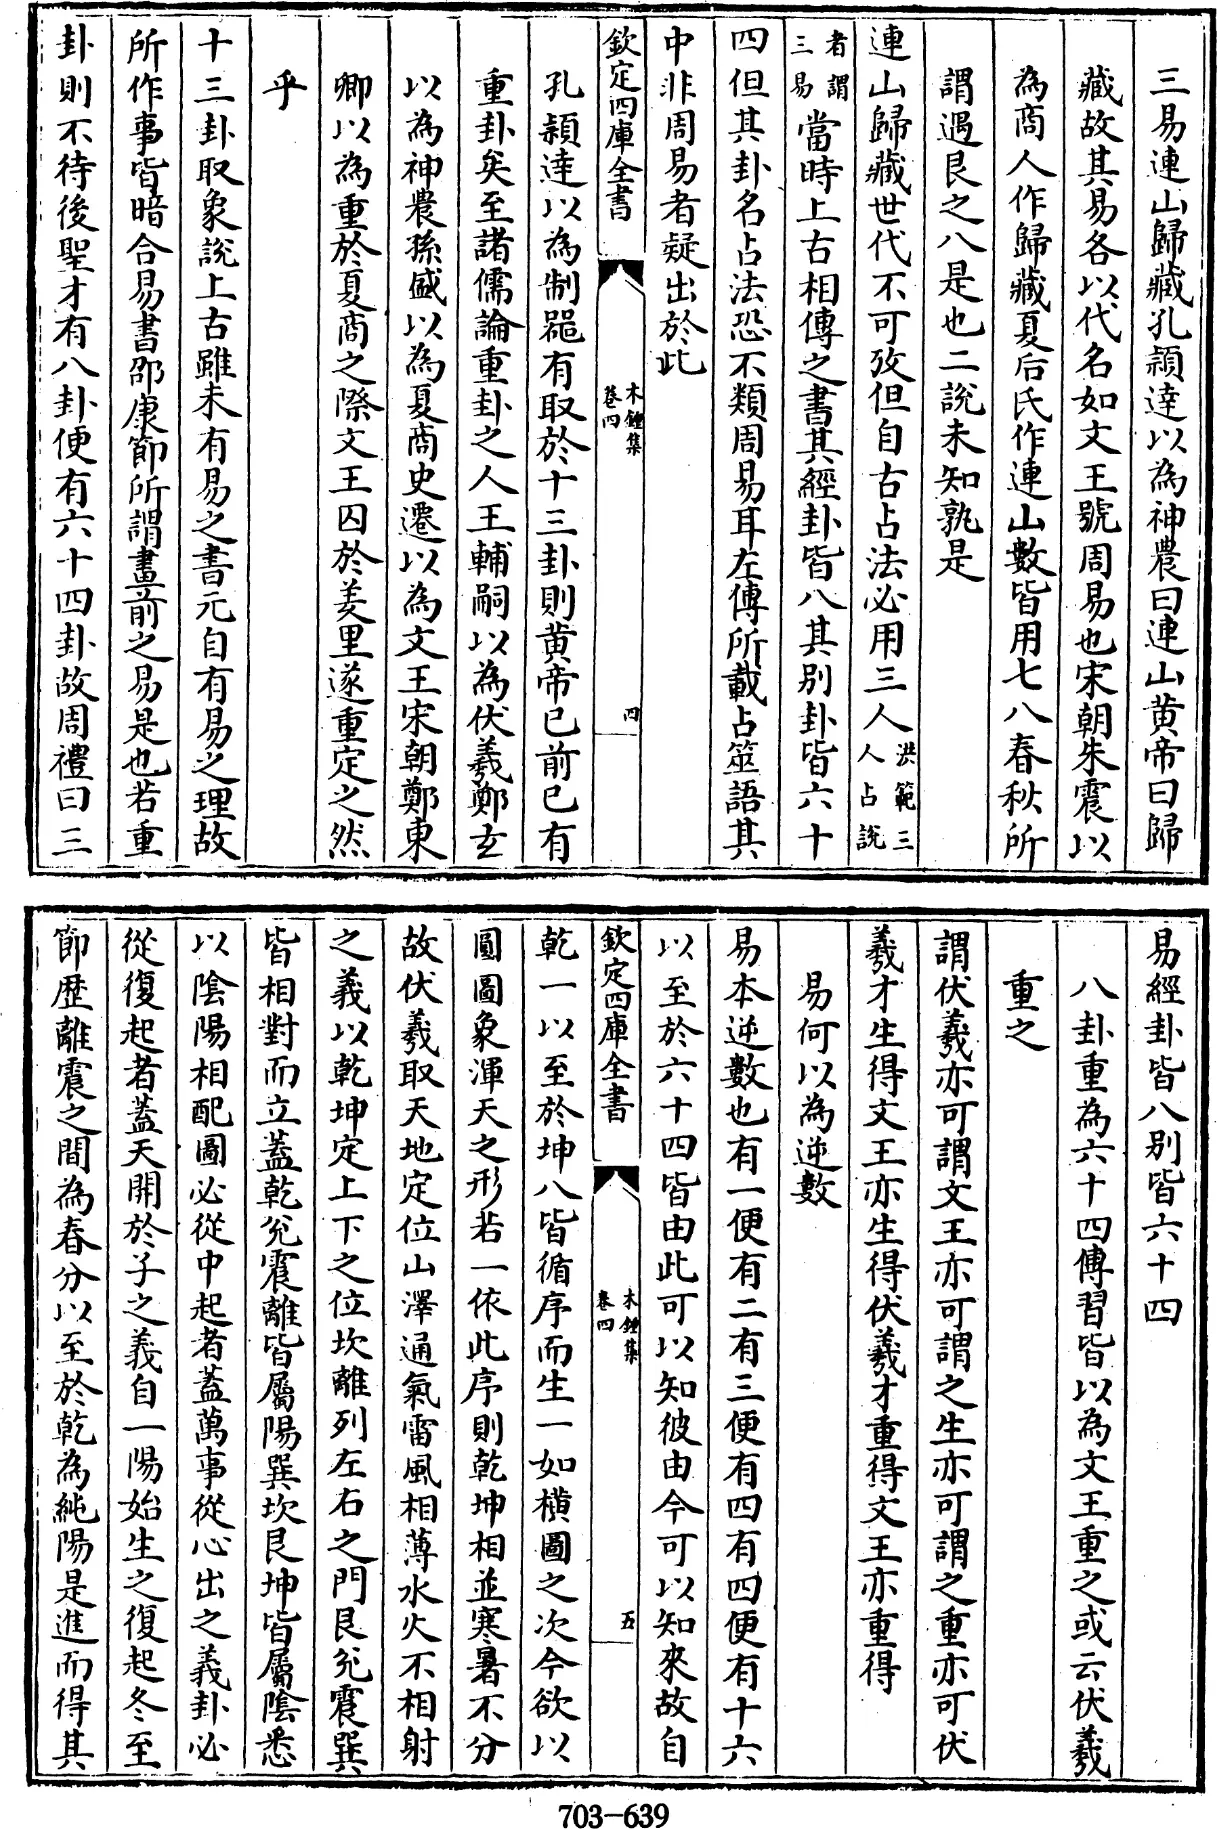 三易連山歸藏孔頴達以為神農曰連山黄帝曰歸
藏故其易各以代名如文王號周易也宋朝朱震以
為商人作歸藏夏后氏作連山數皆用七八春秋所
謂遇艮之八是也二說未知孰是
連山歸藏世代不可攷但自古占法必用三人洪範三人占說
者謂三易當時上古相傳之書其經卦皆八其別卦皆六十
四但其卦名占法恐不類周易耳左傳所載占筮語其
中非周易者疑出於此
欽定四庫全書
木鍾集
卷四
四
孔頴達以為制噐有取於十三卦則黄帝已前已有
重卦矣至諸儒論重卦之人王輔嗣以為伏羲鄭玄
以為神農孫盛以為夏商史遷以為文王宋朝鄭東
卿以為重於夏商之際文王囚於羑里遂重定之然
乎
十三卦取象說上古雖未有易之書元自有易之理故
所作事皆暗合易書邵康節所謂畫前之易是也若重
卦則不待後聖才有八卦便有六十四卦故周禮曰三
易經卦皆八別皆六十四
八卦重為六十四傳習皆以為文王重之或云伏羲
重之
謂伏羲亦可謂文王亦可謂之生亦可謂之重亦可伏
羲才生得文王亦生得伏羲才重得文王亦重得
易何以為逆數
易本逆數也有一便有二有三便有四有四便有十六
以至於六十四皆由此可以知彼由今可以知來故自
欽定四庫全書
木鍾集
卷四
五
乾一以至於坤八皆循序而生一如橫圖之次今欲以
圓圖象渾天之形若一依此序則乾坤相並寒暑不分
故伏羲取天地定位山澤通氣雷風相薄水火不相射
之義以乾坤定上下之位坎離列左右之門艮兊震巽
皆相對而立葢乾兊震離皆屬陽巽坎艮坤皆屬陰悉
以陰陽相配圖必從中起者葢萬事從心出之義卦必
從復起者葢天開於子之義自一陽始生之復起冬至
節歴離震之間為春分以至於乾為純陽是進而得其
703-639